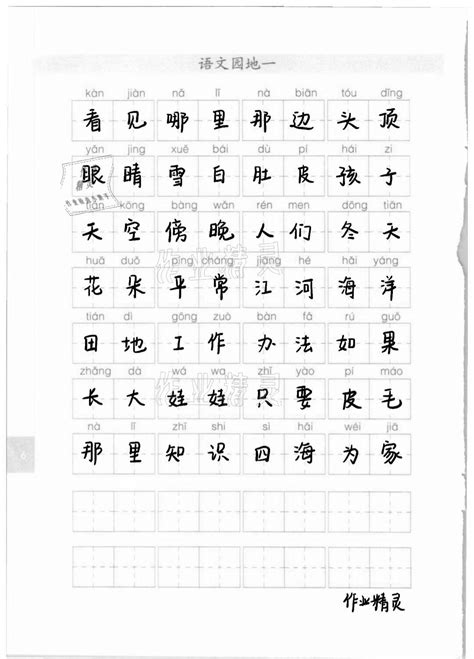 语文园地一
kàn jiàn nǎ lǐ nà biān tóu dǐng
看见 哪里 那边 头顶
yǎn jīng xuě bái dù pí hái zi
眼睛 雪白 肚皮 孩子
tiān kōng bàng wǎn rén men dōng tiān
天空 傍晚 人们 冬天
huā duǒ píng cháng jiāng hé hǎi yáng
花朵 平常 江河 海洋
tián dì gōng zuò bàn fǎ rú guǒ
田地 工作 办法 如果
zhǎng dà wá wa zhǐ yào pí máo
长大 娃娃 只要 皮毛
nà lǐ zhī shi sì hǎi wéi jiā
那里 知识 四海 为家
6
作业精灵
作业精灵
作业精灵